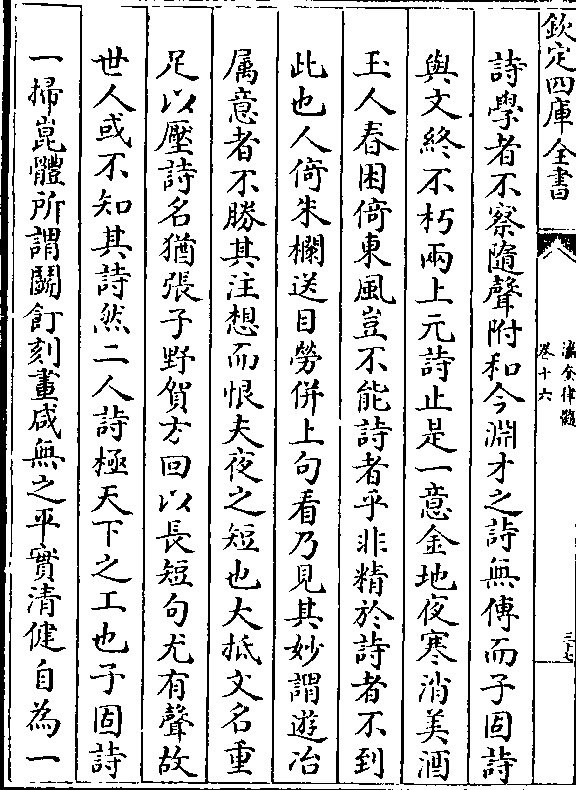 欽定四庫全書
瀛奎律髓
卷十六
三十七
詩學者不察隨聲附和今淵才之詩無傳而子固詩
與文終不朽兩上元詩止是一意金地夜寒消美酒
玉人春困倚東風豈不能詩者乎非精於詩者不到
此也人倚朱欄送目勞併上句看乃見其妙謂遊冶
属意者不勝其注想而恨夫夜之短也大抵文名重
足以壓詩名猶張子野賀方回以長短句尤有聲故
世人或不知其詩然二人詩極天下之工也子固詩
一掃崑體所謂餖飣刻畫咸無之平實清健自為一